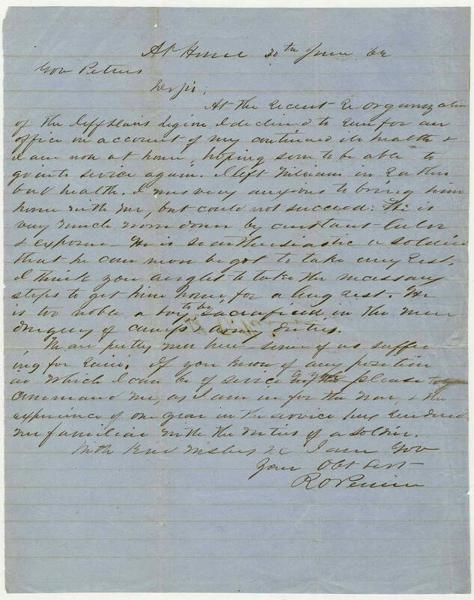 At Home 30th June 62
Gov Pettus
Der Sir,
At the recent Reorganization
of the Jeff Davis Legion I declined to run for an
office on account of my continued ill health &
I am now at home, hoping soon to be able to
go into service again. I left William in rather
bad health. I was very anxious to bring him
home with me, but could not succeed: He is
very much worn down by constant labor
& exposure He is so enthusiastic a soldier
that he can never be got to take any rest.
I think you ought to take the necessary
steps to get him home for a long rest. He
is too noble a boy to be sacrafised in the mere
drugery of camp & army duties.
We are pretty near here some of us suffer
ing for rain. If you know of any position
in which I can be of service to you please to
command me, as I am in for the war, & the
experience of one year in the service has rendered
me familiar with the duties of a soldier.
With kind wishes &c I am Gov
Your Obt Servt
R O Perrin